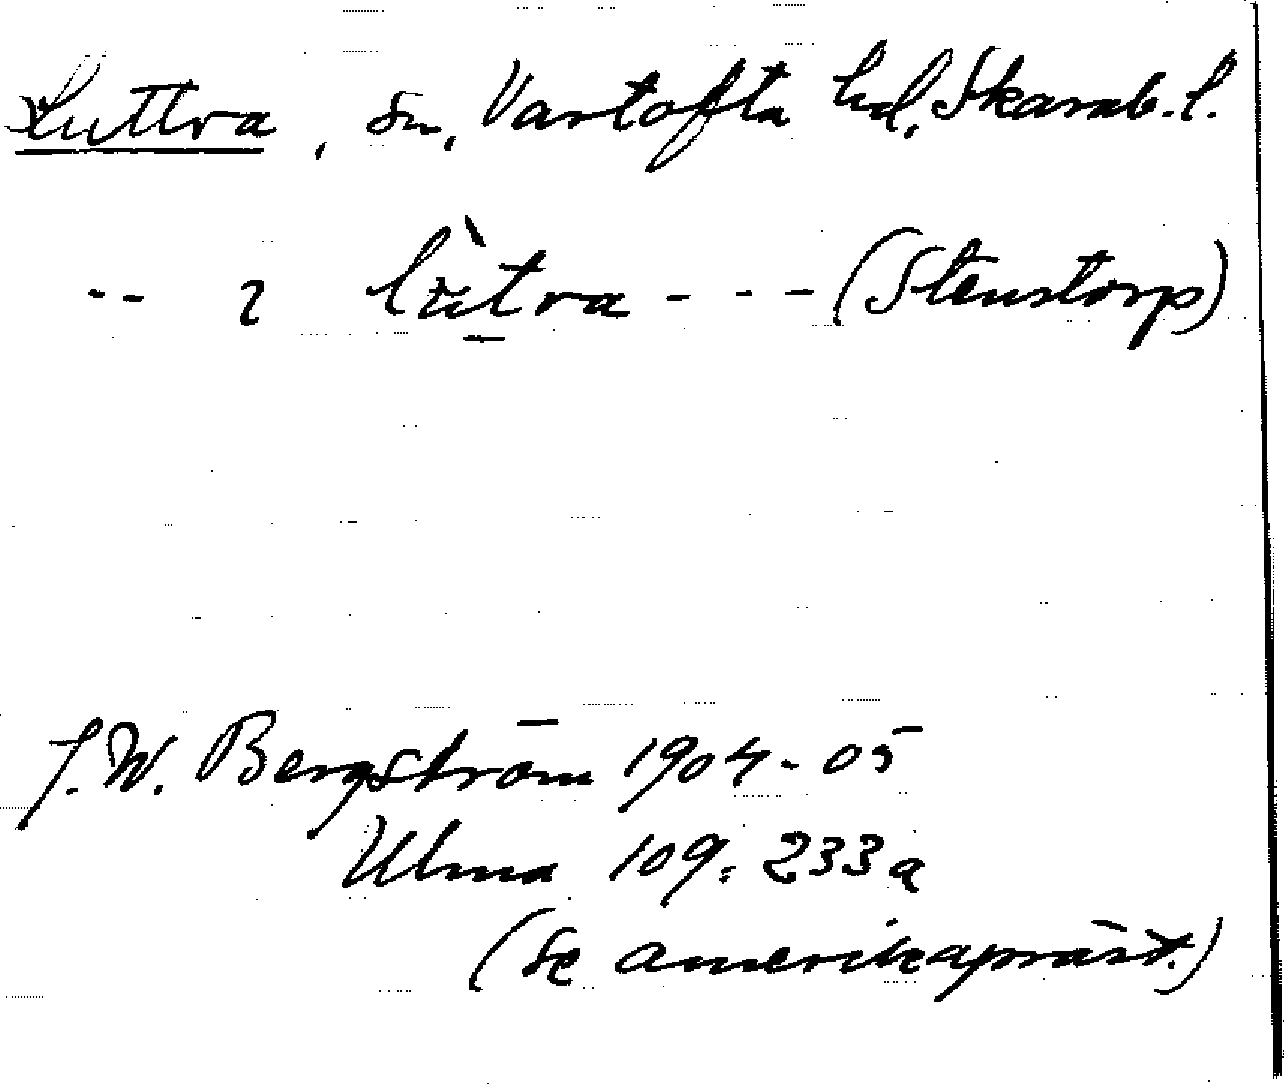 Luttra, sn, Vartofta hd, Skarab. l.
-- i lùtra --- (Stenstorp)
J. W. Bergström 1904-05
Ulma 109:233 a
(Se amerikapräst.)